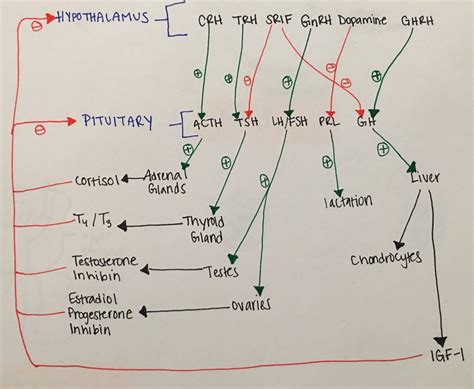 HYPOTHALAMUS CRH TRH SRIF GnRH Dopamine GHRH
⊖
⊕ ⊕ ⊖ ⊕ ⊖ ⊖ ⊕
PITUITARY ACTH TSH LH/FSH PRL GH
⊖
⊕ ⊕ ⊕ ⊕ ⊕
Cortisol Adrenal Glands
Liver
lactation
T4/T3 Thyroid Gland
Chondrocytes
Testosterone
Inhibin
Testes
Estradiol
Progesterone
Inhibin
Ovaries
IGF-1